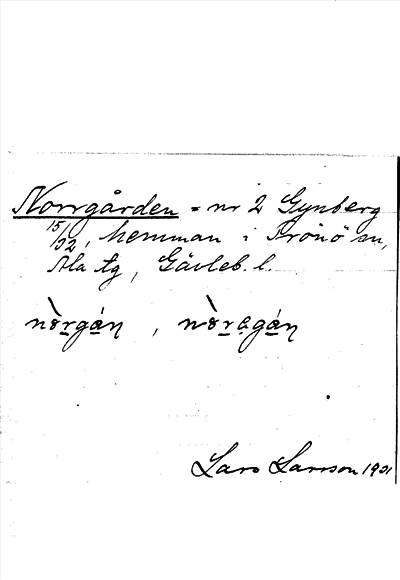 Norrgården = nr 2 Gynberg
15/32, hemman i Trönö sn,
Ala tg, Gävleb. l.
nòrgán, nòragán
Lars Larsson 1901